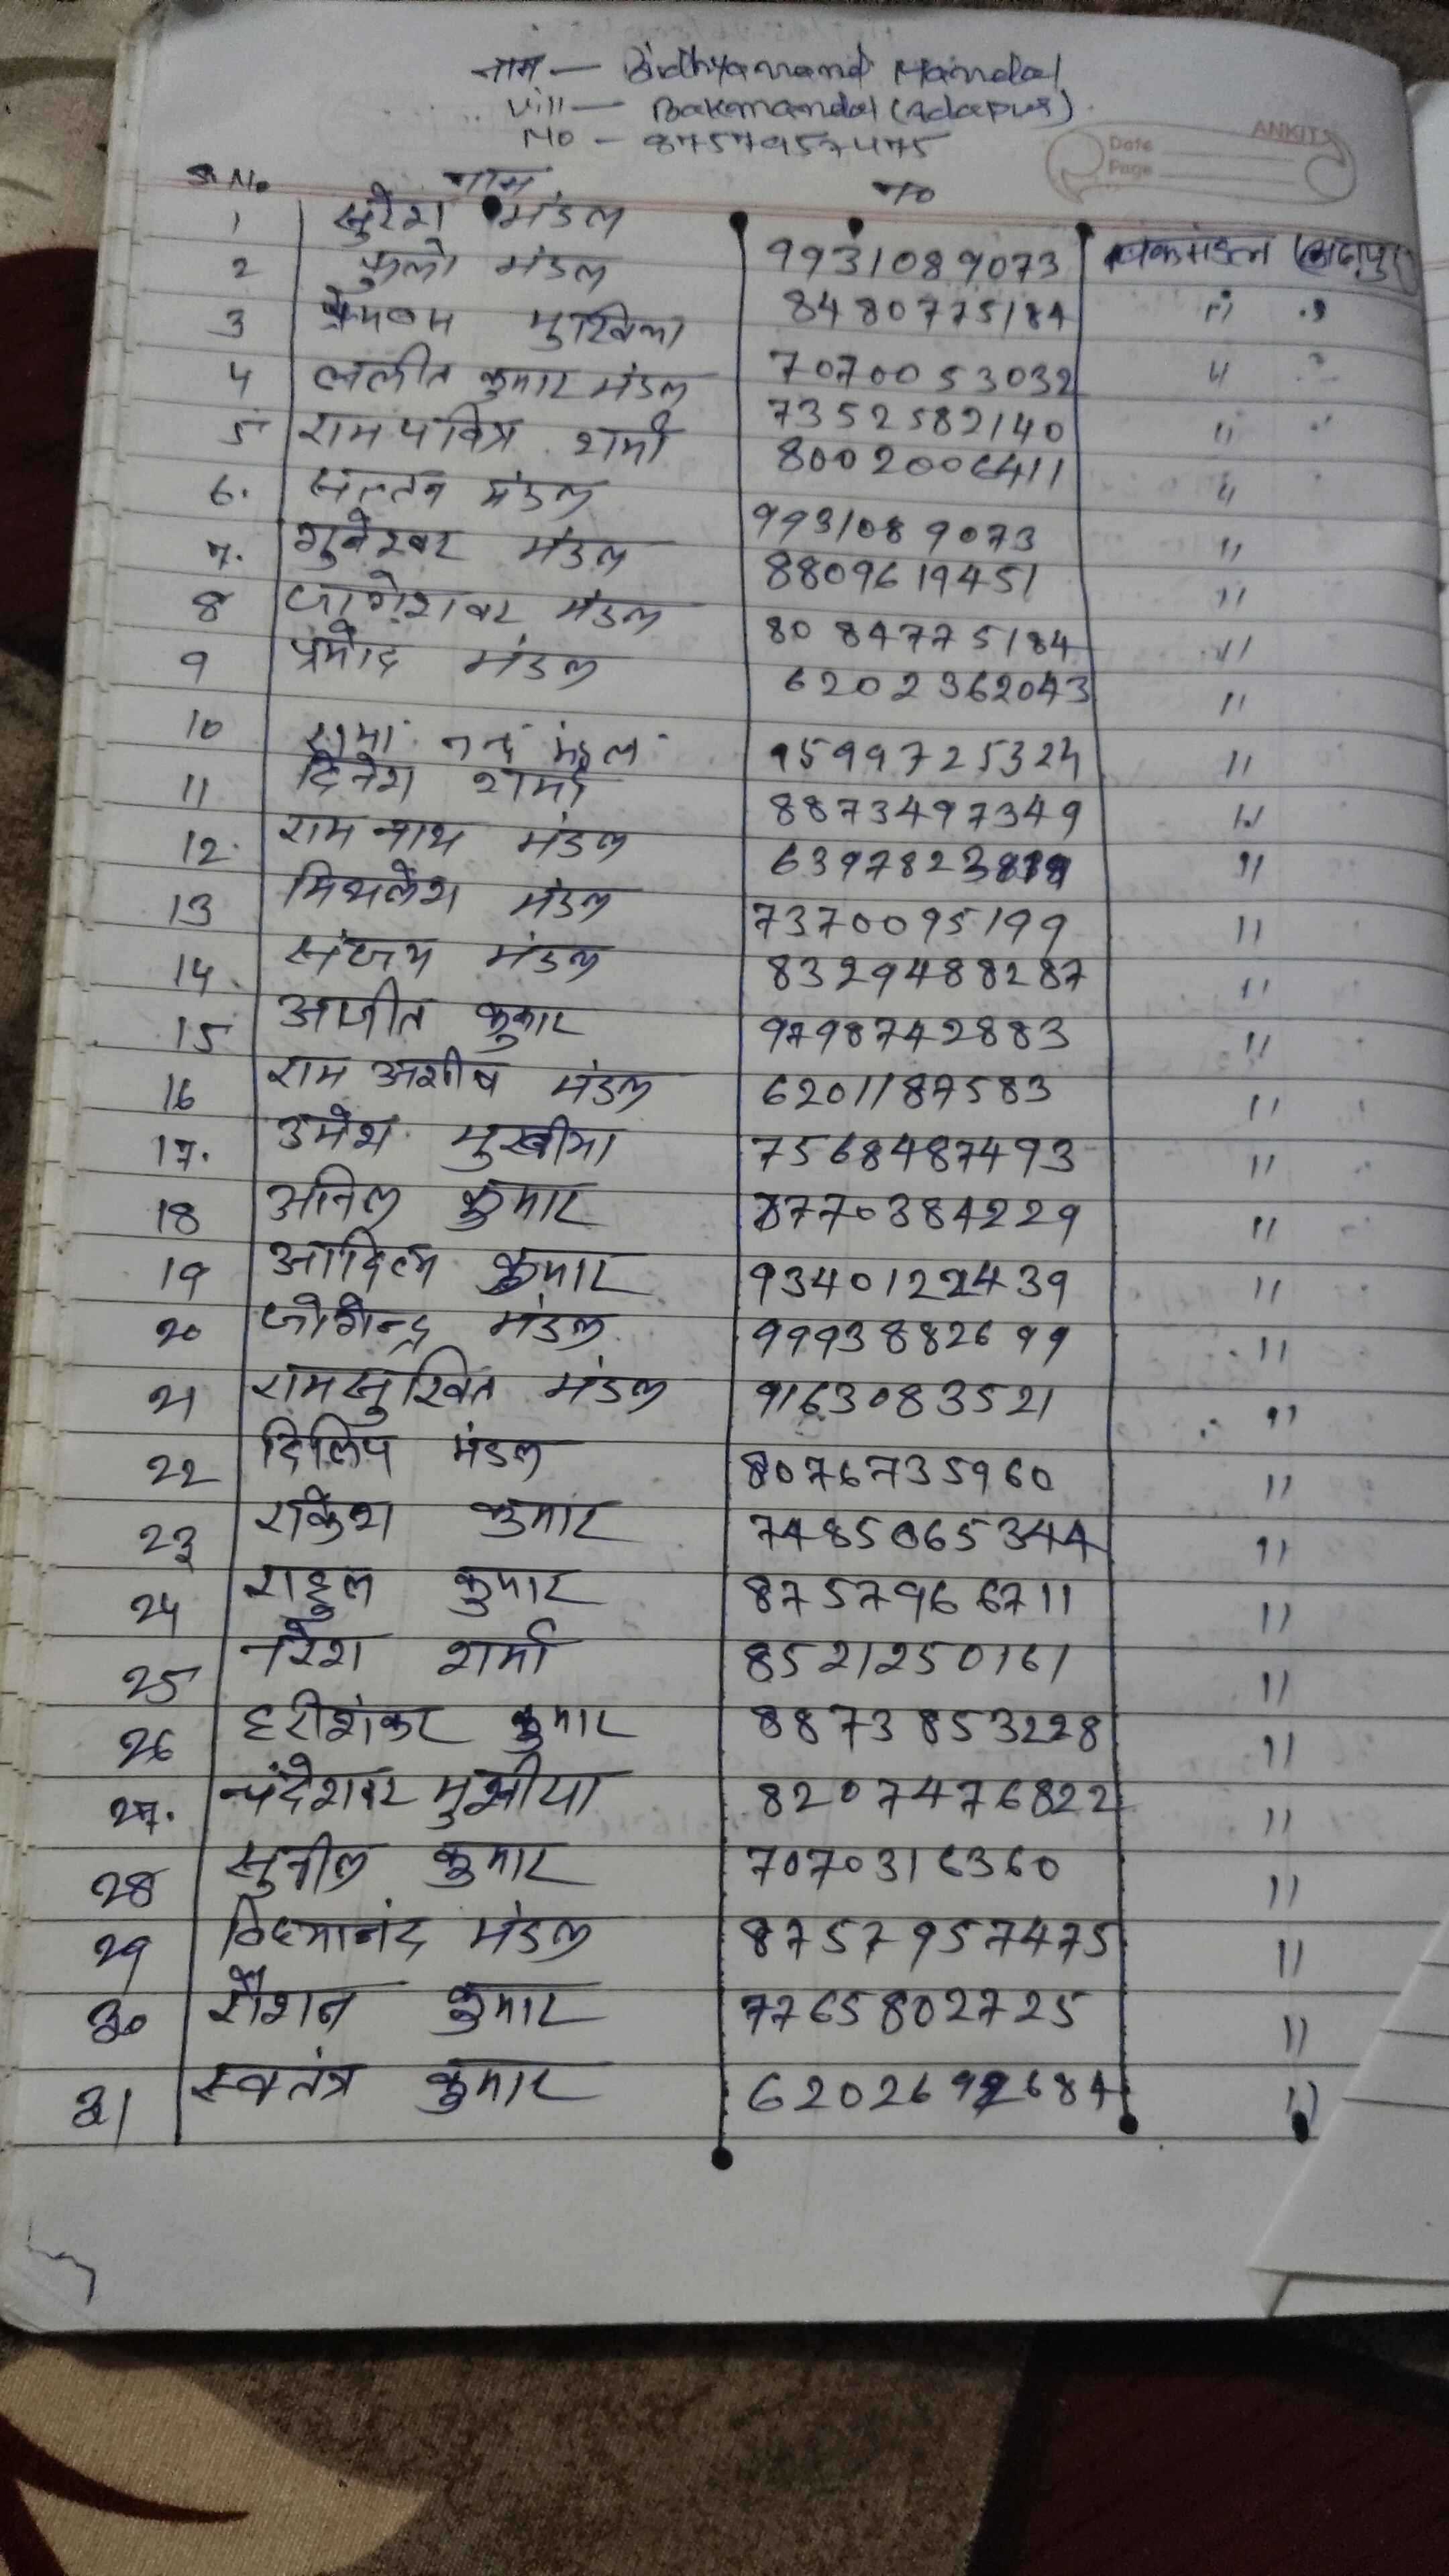 नाम - Bidhyanand Mandal
Vill - Bakmandal (Adapur)
No - 8757957475
ANKIT
Date
Page
S.No नाम No
1 सुरेश मंडल 9931089073 बकमंडल (अदापुर)
2 फुलो मंडल 8480775184 " "
3 मुखिया 7070053032 " "
4 ललीत कुमार मंडल 7352582140 " "
5 राम पवित्र शर्मा 8002006411 "
6. मंडल 9931089073 "
7. गुनेश्वर मंडल 8809619451 "
8 जागेशवर मंडल 8084775184 "
9 प्रमोद मंडल 6202362043 "
10 रामा नन्द मंडल 9599725324 "
11 दिनेश शर्मा 8873497349 "
12. राम नाथ मंडल "
13 मिथलेश मंडल 7370095199 "
14 संजय मंडल 8329488287 "
15 अजीत कुमार 9798742883 "
16 राम अशीष मंडल 6201187583 "
17. उमेश मुखीया 7568487493 "
18 अनिल कुमार 8770384229 "
19 आदित्य कुमार 9340122439 "
20 जोगेन्द्र मंडल 9993882699 "
21 रामसुखित मंडल 9163083521 "
22 दिलिप मंडल 8076735960 "
23 राकेश कुमार 7485065344 "
24 राहुल कुमार 8757966711 "
25 नरेश शर्मा 8521250161 "
26 हरीशंकर कुमार 8873853228 "
27. चंदेशवर मुखीया 8207476822 "
28 सुनील कुमार 7070316360 "
29 विध्यानंद मंडल 8757957475 "
30 रौशन कुमार 7765802725 "
31 स्वतंत्र कुमार 6202692684 "